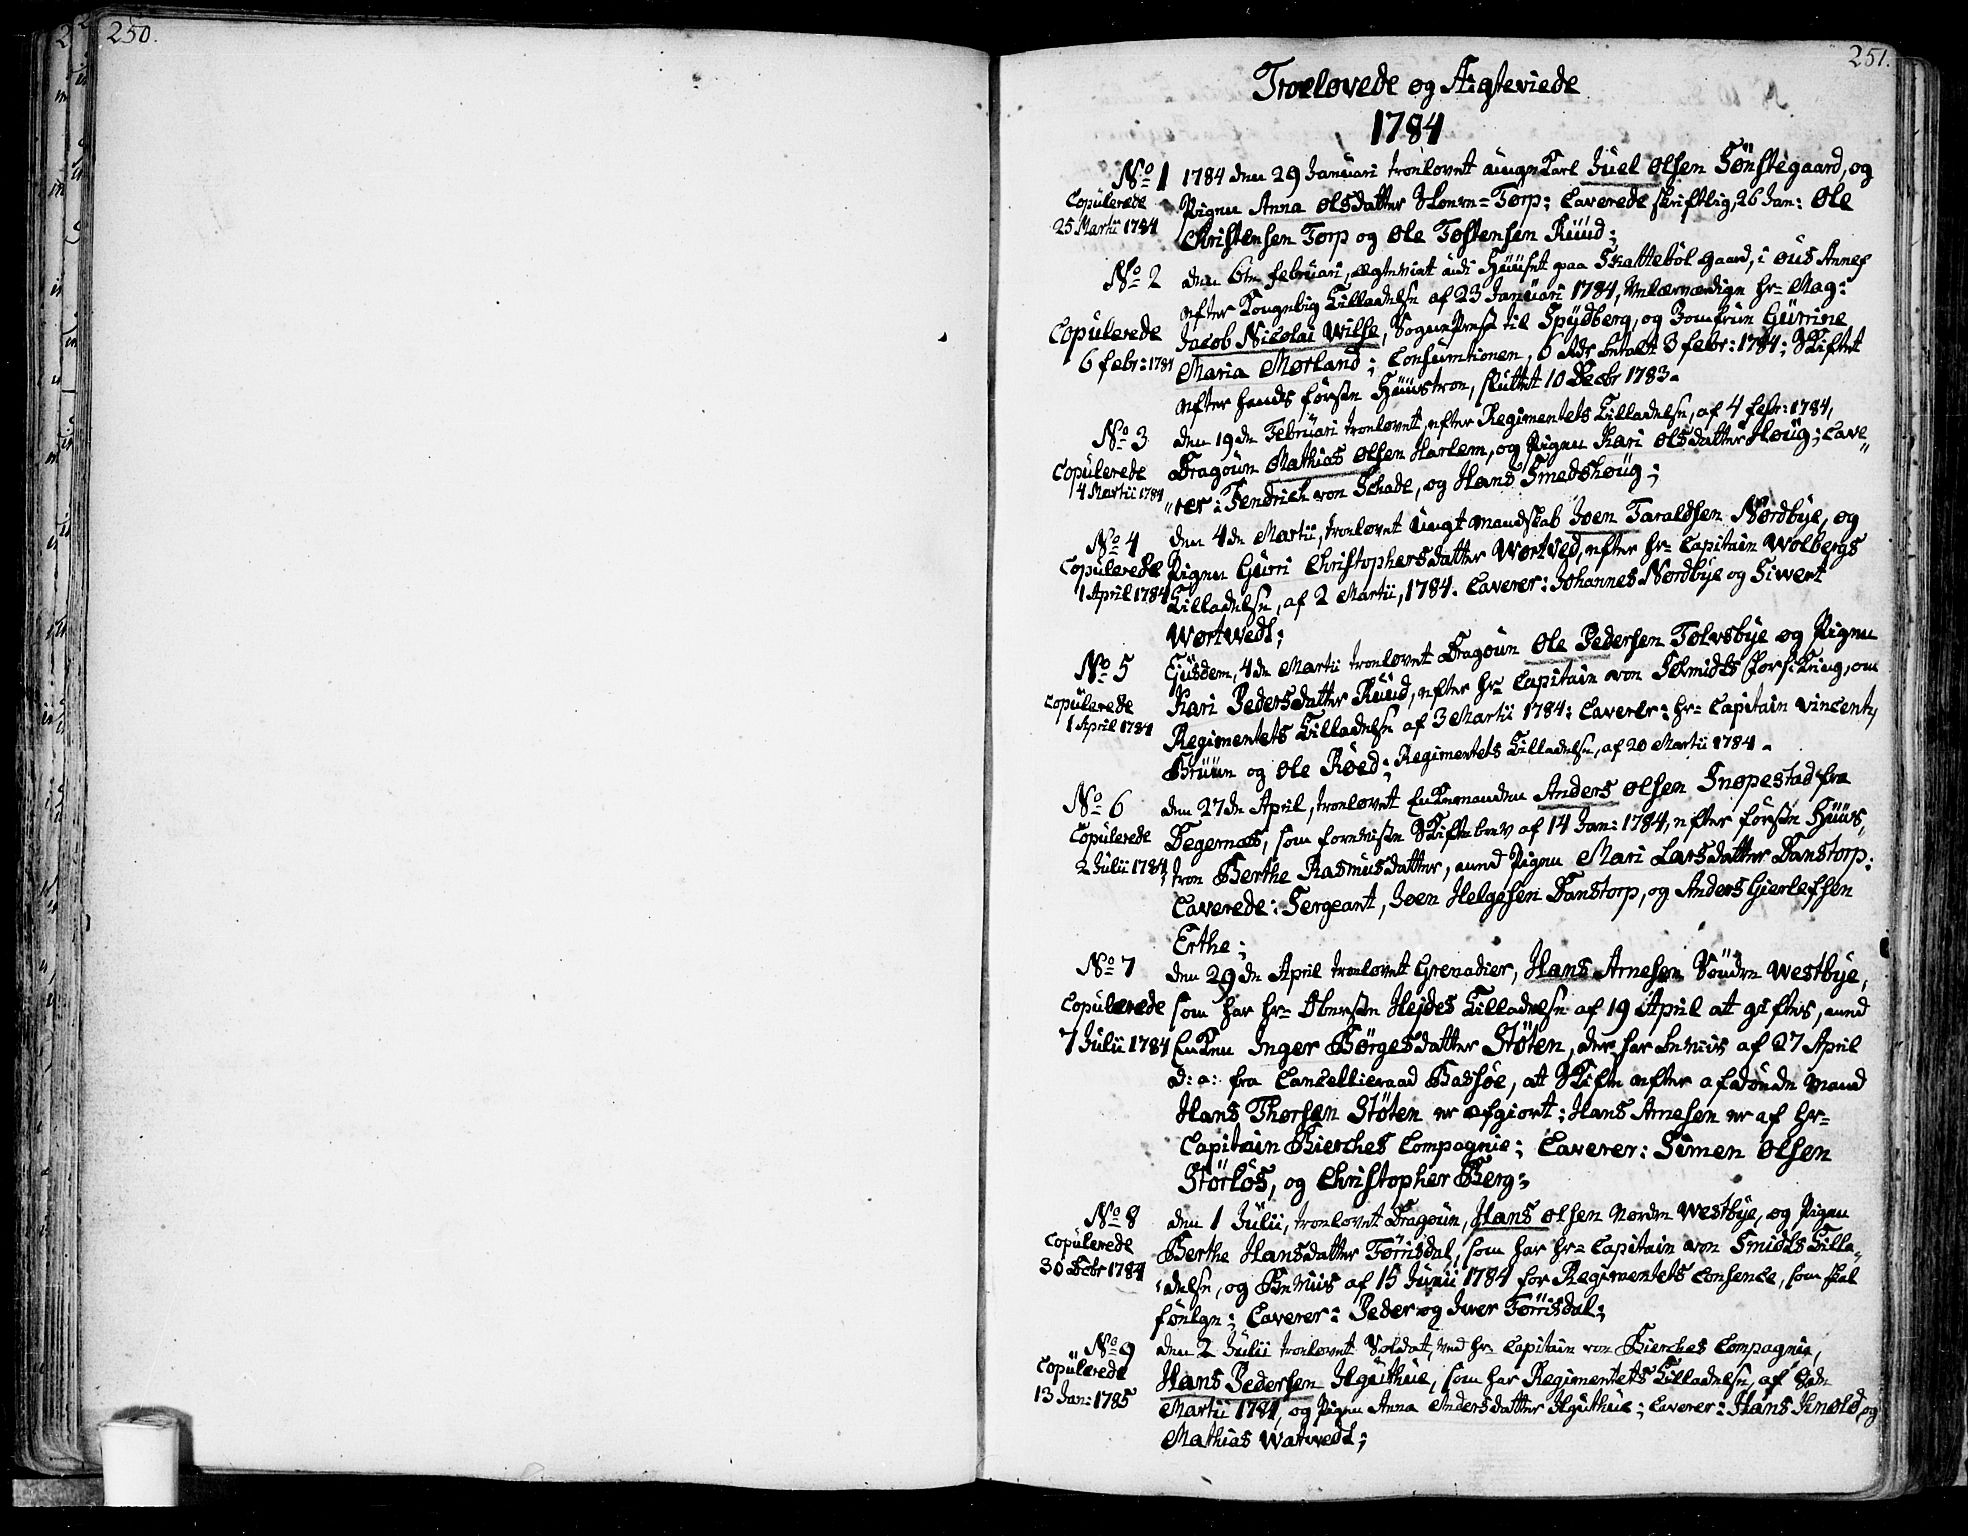 250.
251.
Troelovede og Ægteviede
1784
No 1 1784 den 29 Januari troelovet ungkarl Juel Olsen Sönstegaard, og
Copulerede
25 Martii 1784
Pigen Anna Olsdatter Torp; Caverede skriftlig, 26 Jan: Ole
Christensen Torp og Ole Tostensen Ruud;
No 2 den 6te Februari, ægteviet udi Huuset paa Skatteböl gaard, i
Copulerede
6 febr: 1784
efter Kongelig Tilladelse af 23 Januari 1784, Velærværdige Hr= Mag:
Jacob Nicolai Wilse, SognePræst til Spydberg, og Jomfrue Gurrine
Maria Mørland; Consumtionen, 6 Rdr betalt 3 febr: 1784; Skiftet
efter hands förste Huustroe, sluttet 10 Decbr 1783.
No 3 den 19de Februari troelovet, efter Regimentets Tilladelse, af 4 febr: 1784,
Copulerede
4 Martii 1784
Dragoun Mathias Olsen Harlem, og Pigen Kari Olsdatter Houg; Cave„
„rer: Fendrich von Schade, og Hans Smedshoug;
No 4 den 4de Martii, troelovet ungt mandskab Joen Taraldsen Nordbye, og
Copulerede
1 April 1784
Pigen Gurri Christophersdatter Wortved, efter Hr= Capitain Wolbergs
Tilladelse, af 2 Martii, 1784. Caverer: Johannes Nordbye og Siwert
Wortwedt;
No 5 Ejusdem, 4de Martii troelovet Dragoun Ole Pedersen Tolvsbye og Pigen
Copulerede
1 April 1784
Kari Pedersdatter Ruud, efter Hr= Capitain von Schmidts forsikring, om
Regimentets Tilladelse af 3 Martii 1784: Caverer: Hr= Capitain Vincentz
Bruun og Ole Röed; Regimentets Tilladelse, af 20 Martii 1784.
No 6 den 27de April, troelovet Enkemanden Anders Olsen Snopestad fra
Copulerede
2 Julii 1784
Degernæs, som foreviste Skiftebrev af 14 Jan: 1784, efter förste Huus„
„troe Berthe Rasmusdatter, med Pigen Mari Larsdatter Danstorp:
Caverede: Sergeant, Joen Helgesen Danstorp, og Anders Gierlefsen
Erthe;
No 7 den 29de April troelovet Grenadier, Hans Arnesen Söndre Westbye,
Copulerede
7 Julii 1784
som har Hr= Oberste Hejdes Tilladelse af 19 April at giftes, med
Enken Inger Börgesdatter Stöten, der har beviis af 27 April
d: a: fra Cancellieraad Bassöe, at Skifte efter afdöde Mand
Hans Thorsen Stöten er afgiort; Hans Arnesen er af Hr=
Capitain Bierches Compagnie; Caverer: Simen Olsen
Störlös, og Christopher Berg;
No 8 den 1 Julii, troelovet Dragoun, Hans Olsen Nordre Westbye, og Pigen
Copulerede
30 Decbr 1784
Berthe Hansdatter Törrisdal, som har Hr= Capitain von Smidts Tilla„
„delse, og Beviis af 15 Junii 1784 for Regimentets Consence, som skal
fölge; Caverer: Peder og Iver Törrisdal;
No 9 den 2 Julii troelovet Soldat, ved Hr= Capitain von Bierches Compagnie,
Copulerede
13 Jan: 1785
Hans Pedersen Ilguthuie, som har Regimentets Tilladelse, af
Martii 1784, og Pigen Anna Andersdatter Ilguthuie; Caverer: Hans Knold, og
Mathias Watwedt;